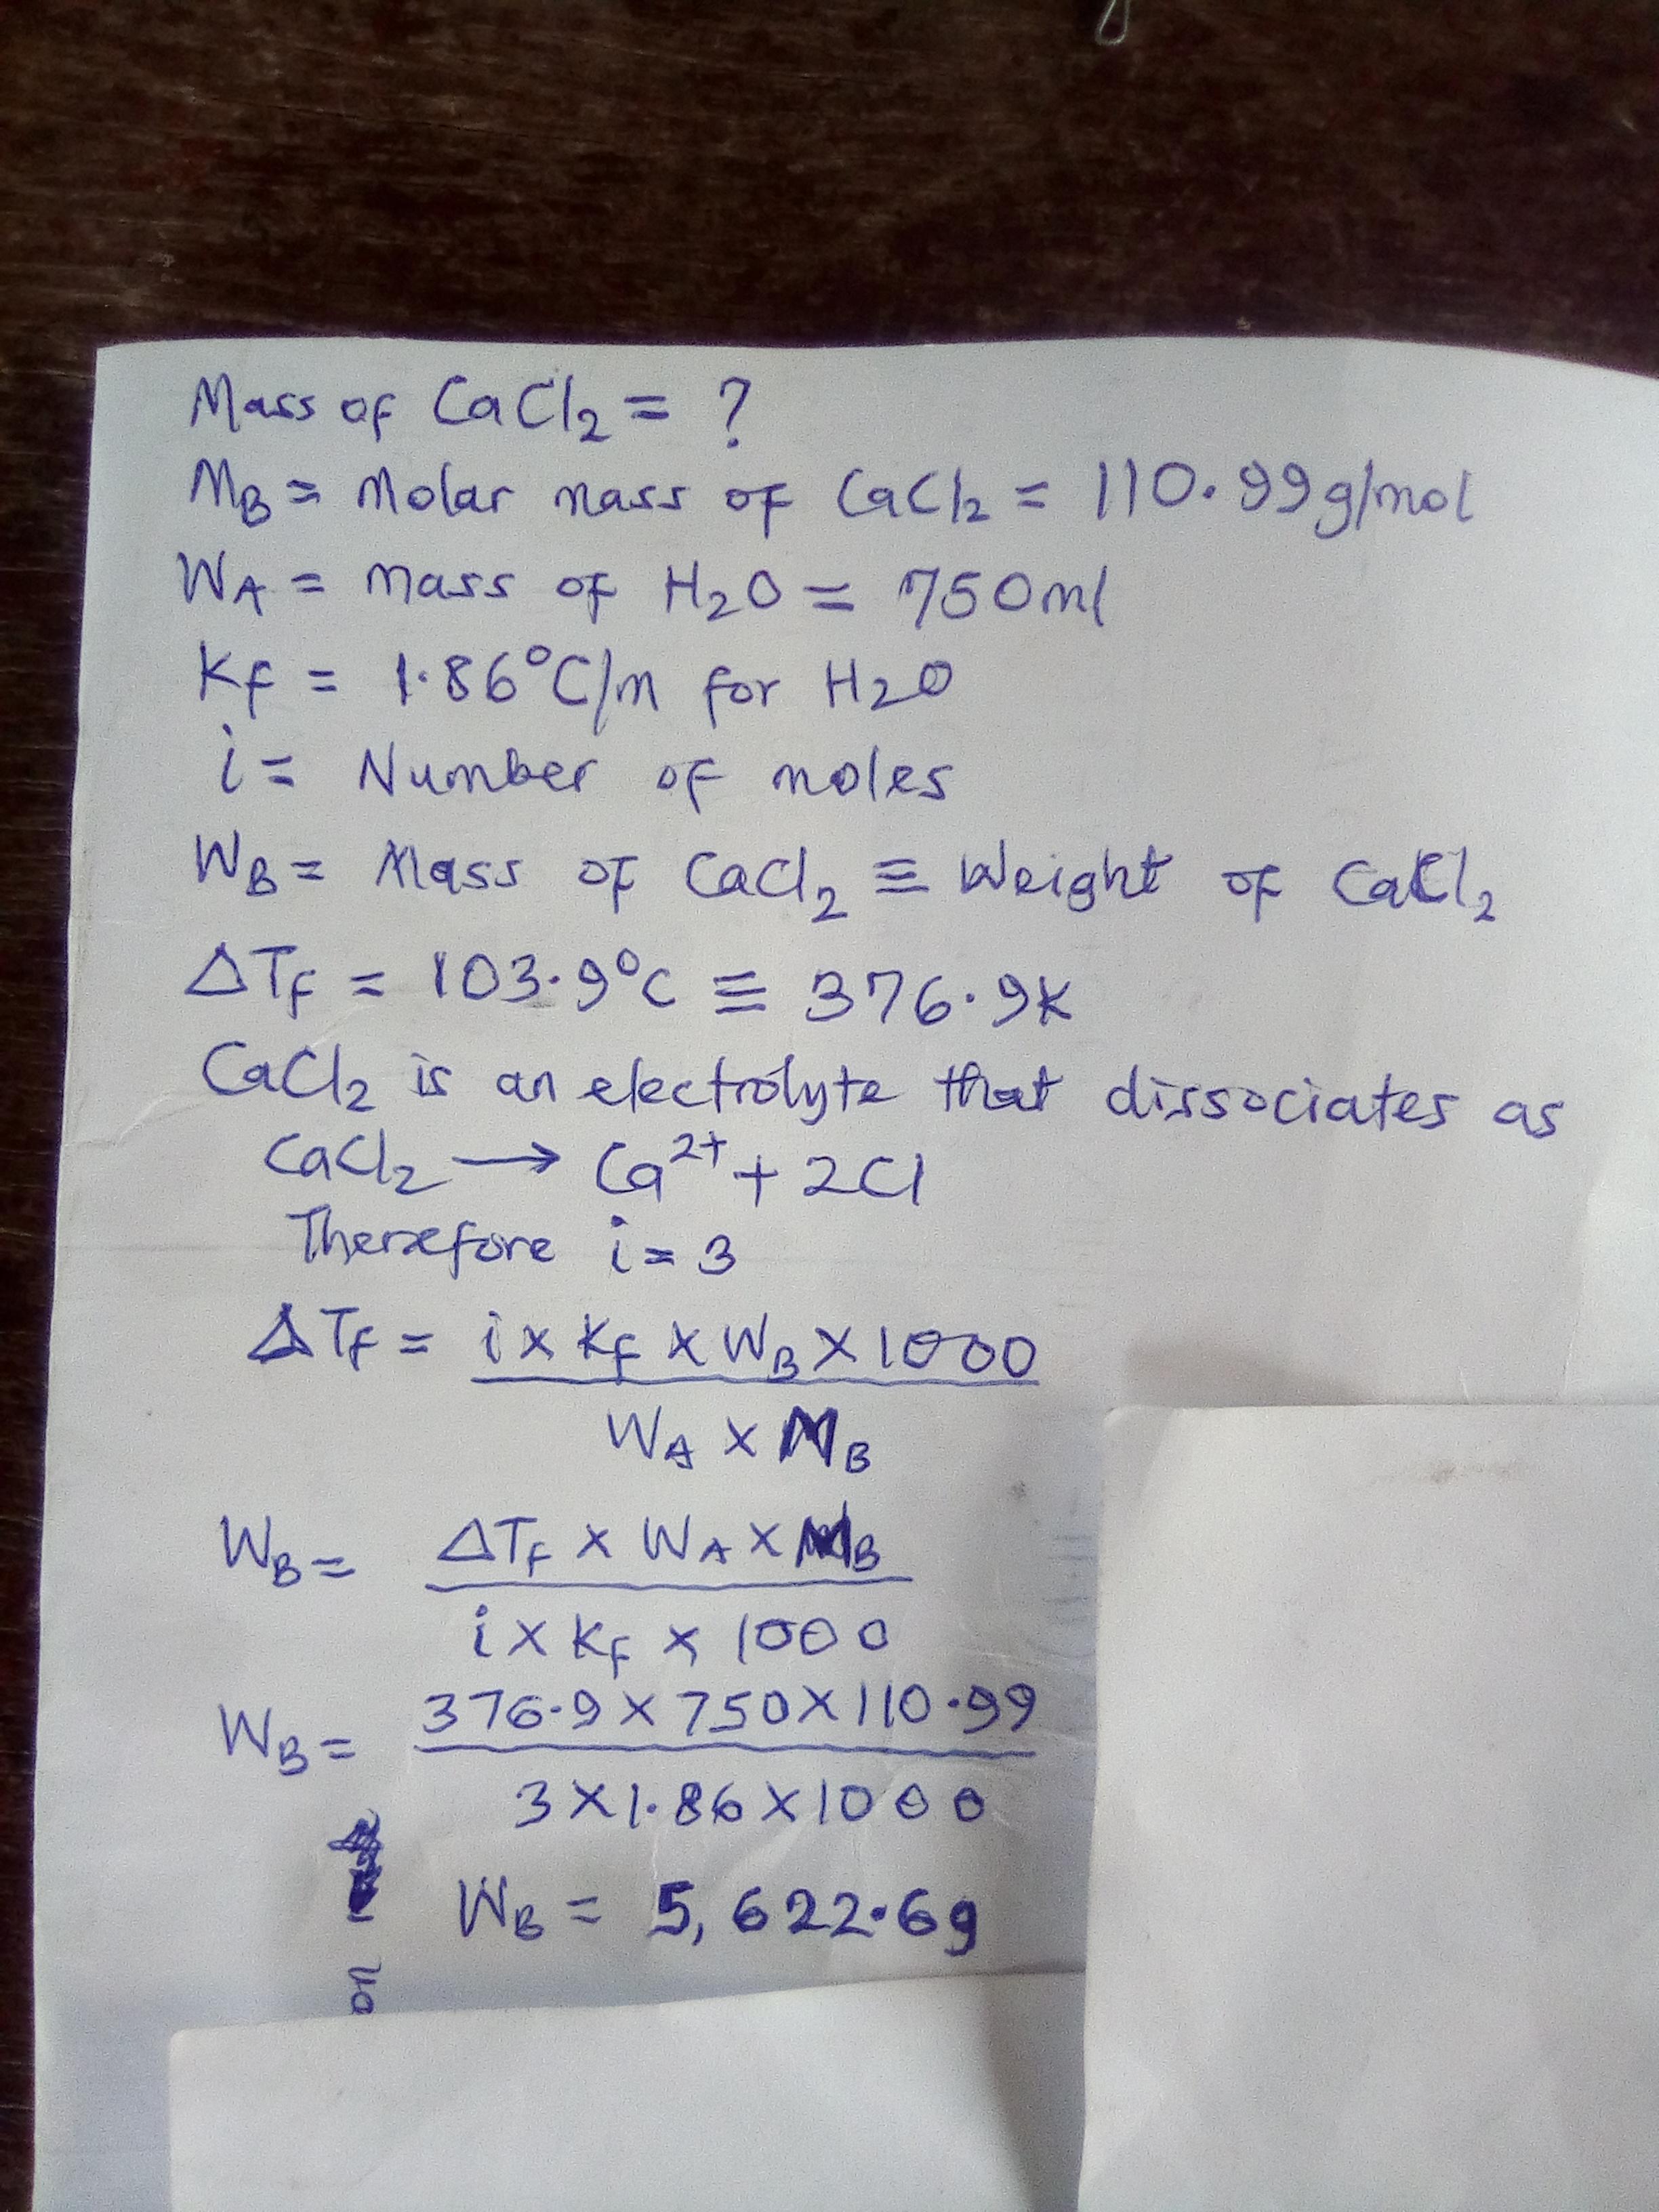 Mass of CaCl₂ = ?
M_B = Molar mass of CaCl₂ = 110.99g/mol
W_A = Mass of H₂O = 750ml
Kf = 1.86°C/m for H₂O
i = Number of moles
W_B = Mass of CaCl₂ ≡ Weight of CaCl₂
ΔTf = 103.9°C ≡ 376.9K
CaCl₂ is an electrolyte that dissociates as
CaCl₂ → Ca²⁺ + 2Cl
Therefore i = 3
ΔTf = i x Kf x W_B x 1000
W_A x M_B
W_B = ΔTf x W_A x M_B
i x Kf x 1000
W_B = 376.9 x 750 x 110.99
3 x 1.86 x 1000
W_B = 5,622.6g